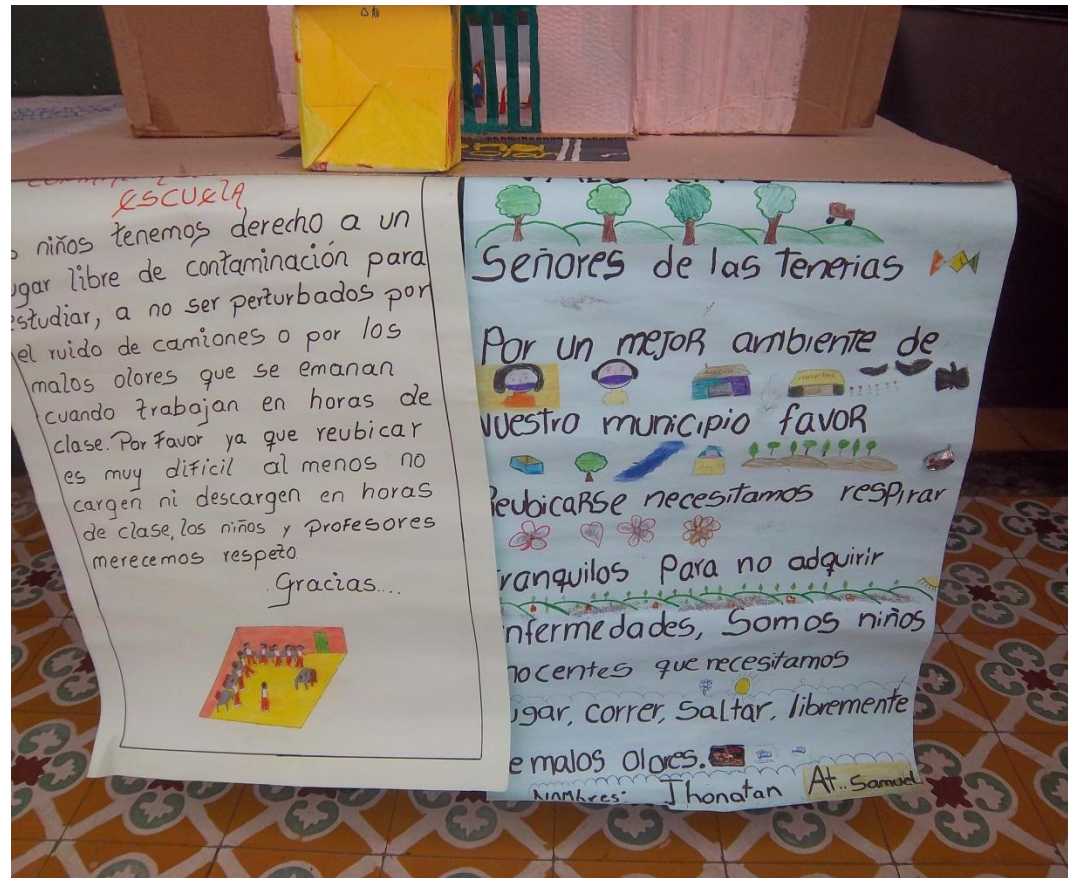 ESCUELA
niños tenemos derecho a un
libre de contaminación para
a no ser perturbados por
el ruido de camiones o por los
malos olores que se emanan
cuando trabajan en horas de
clase. Por Favor ya que reubicar
es muy dificil al menos no
cargen ni descargen en horas
de clase, los niños y profesores
merecemos respeto
Gracias....
Señores de las Tenerias
Por un mejor ambiente de
Hospital
Nuestro municipio favor
Reubicarse necesitamos respirar
tranquilos Para no adquirir
nfermedades, Somos niños
nocentes que necesitamos
ugar, correr, Saltar, libremente
e malos olores.
Nombres: Jhonatan At.. Samuel